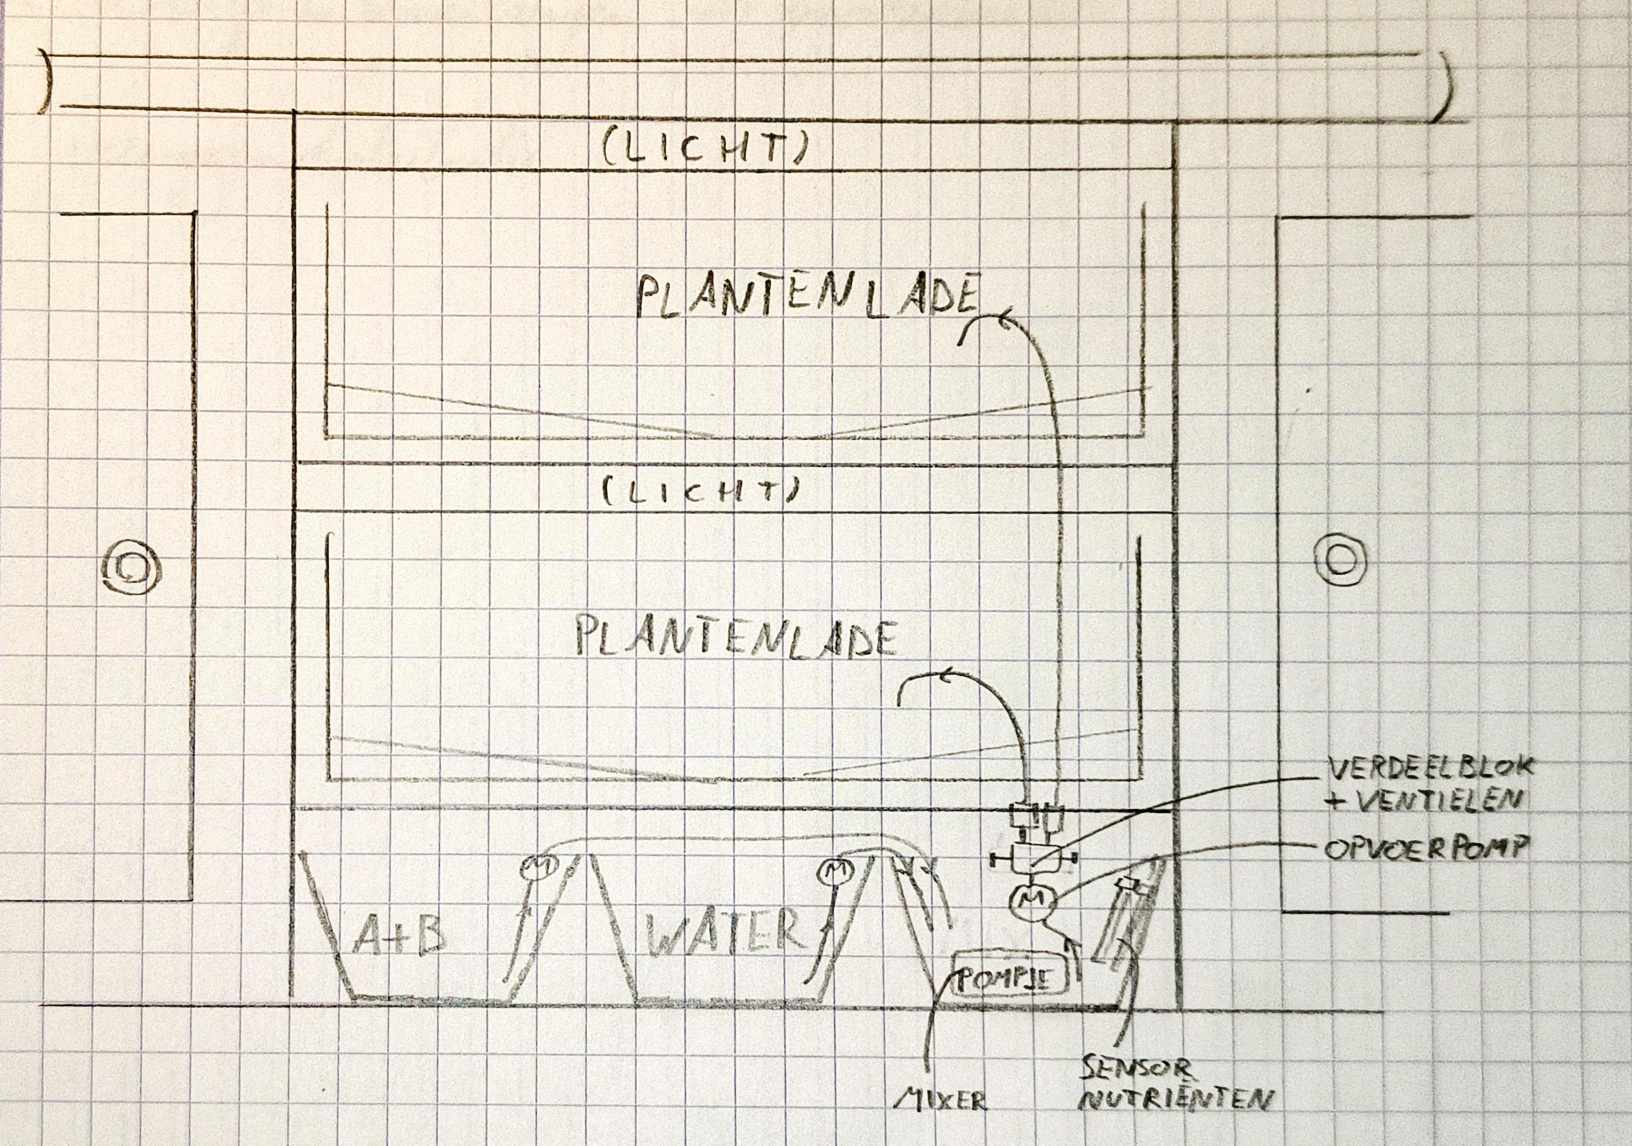 (LICHT)
PLANTENLADE
(LICHT)
PLANTENLADE
VERDEELBLOK
+ VENTIELEN
OPVOERPOMP
M
M
M
A+B
WATER
POMPJE
MIXER
SENSOR
NUTRIËNTEN